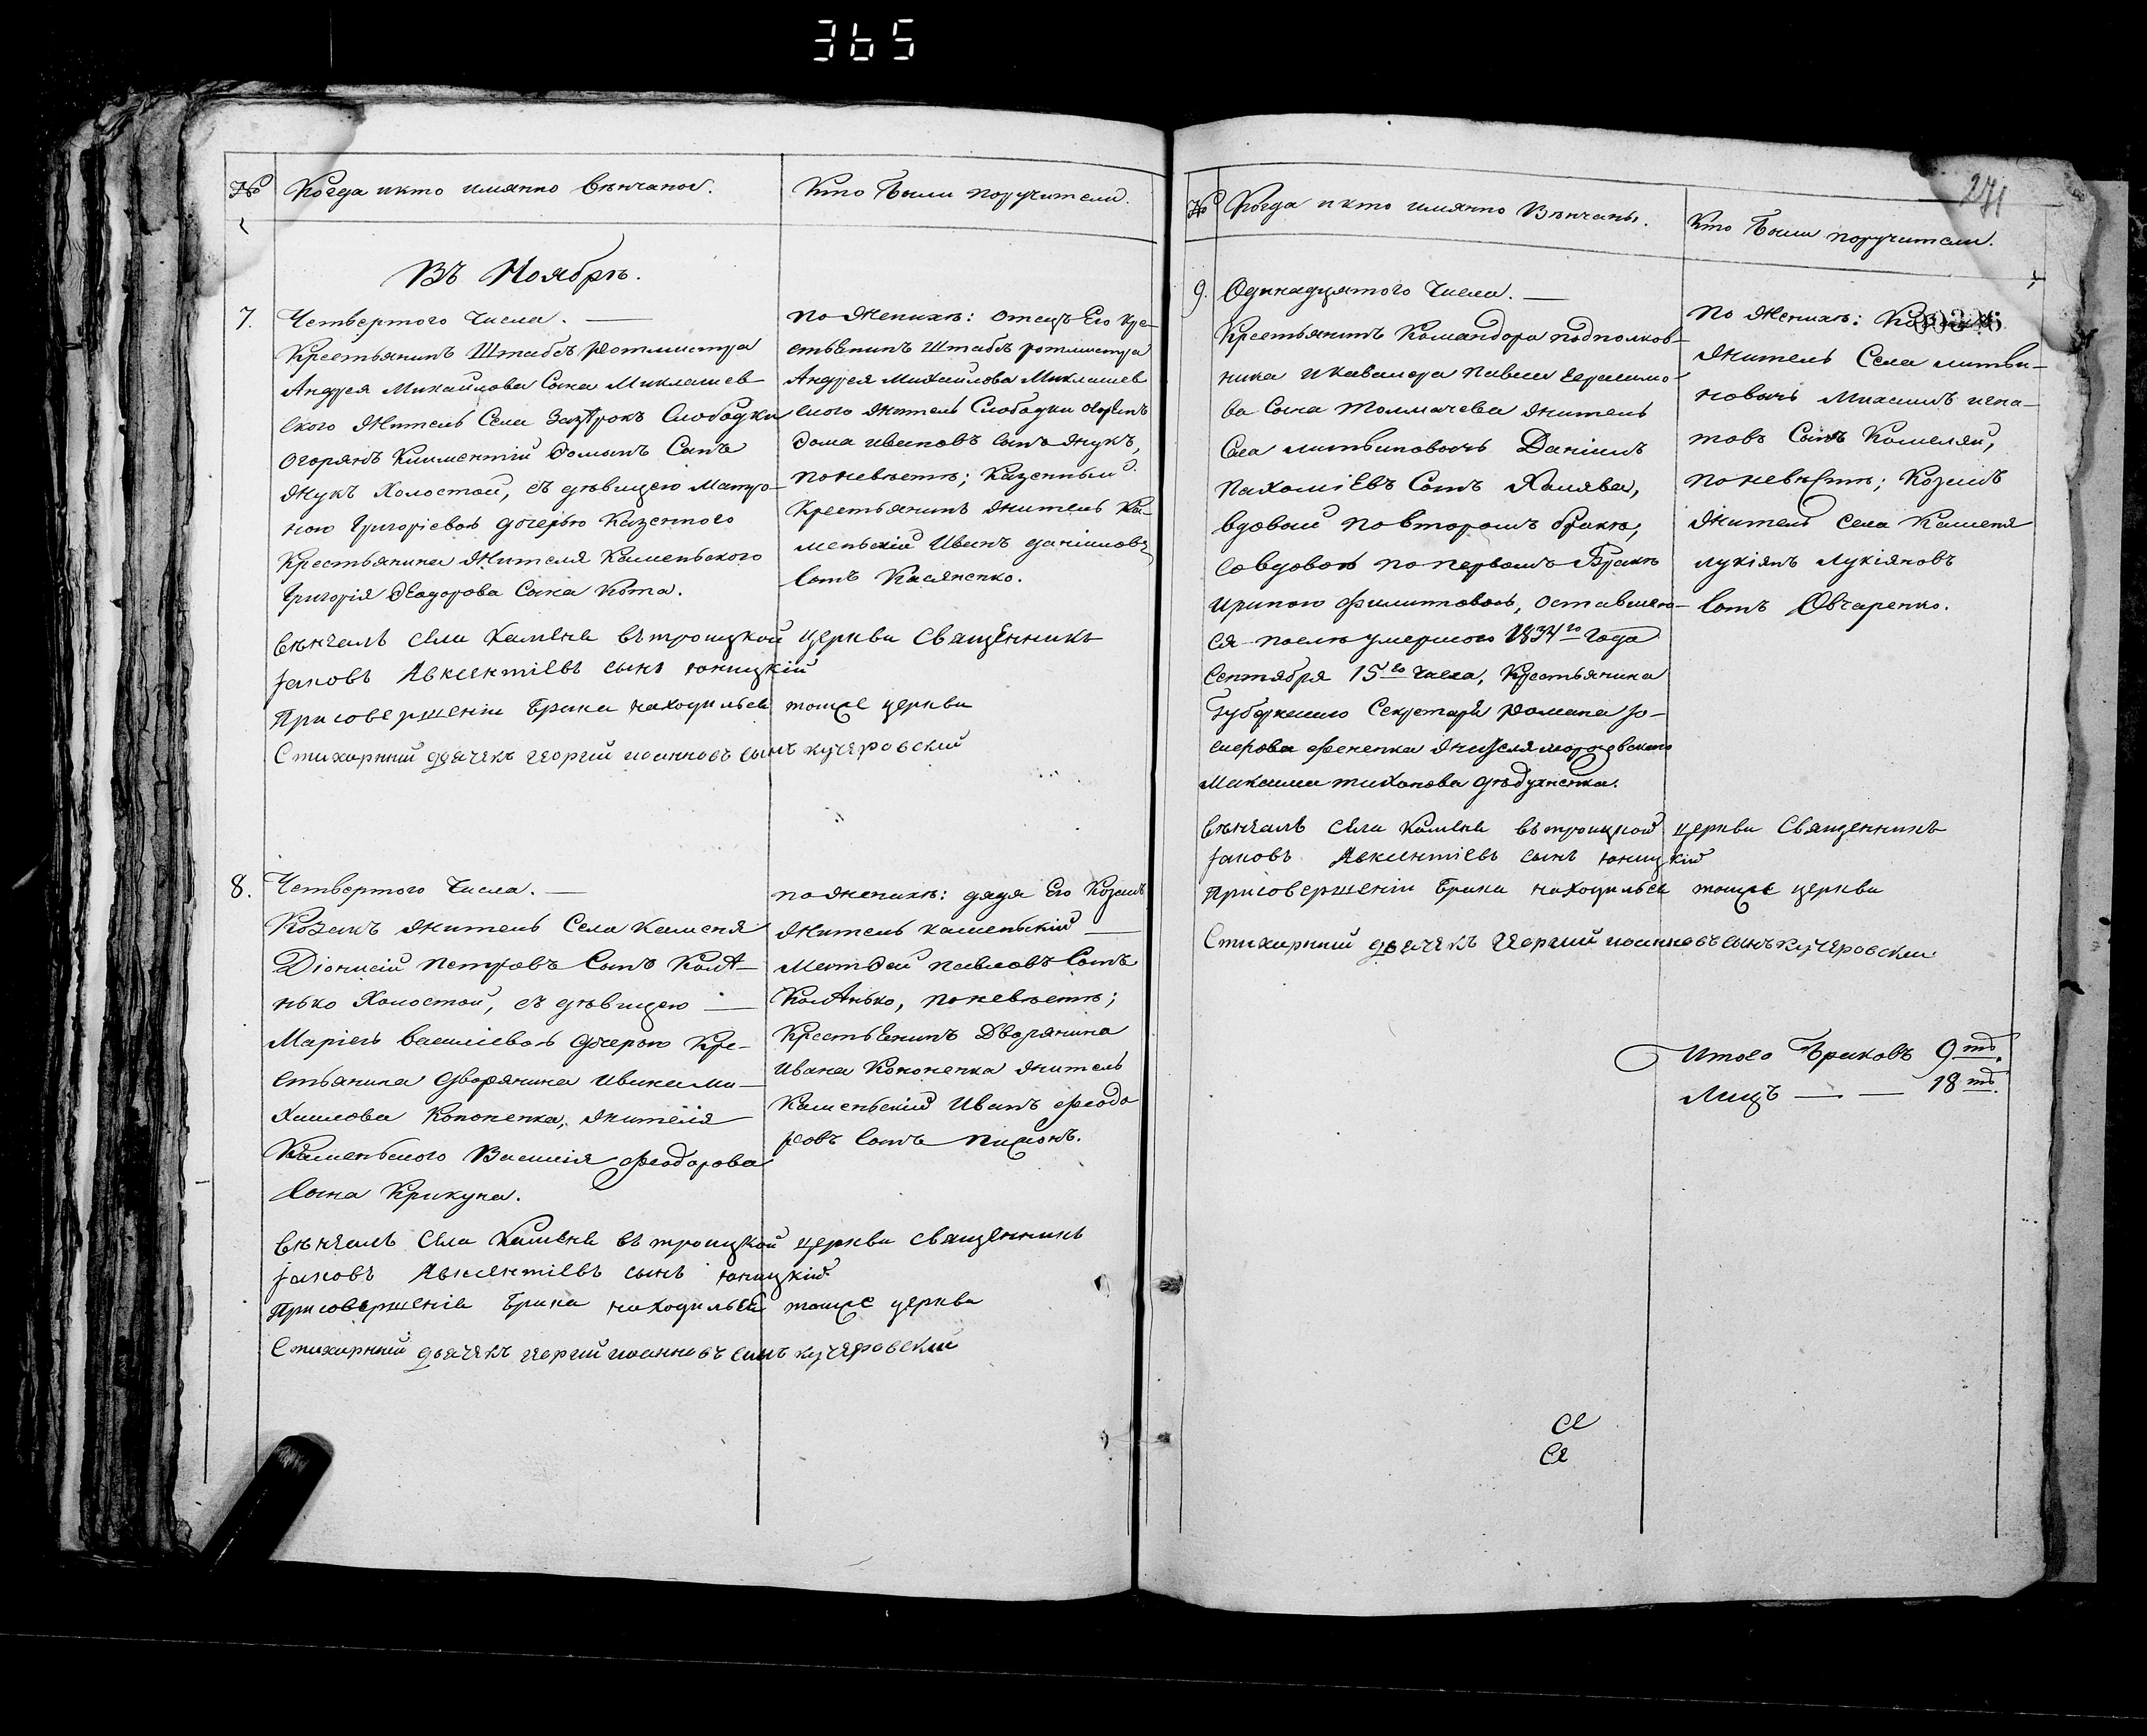 365
№ Когда икто имянно Вѣнчаны. Кто были поручители.
Въ Ноябрѣ.
7. Четвертого Числа. —
Крестьянинъ Штабсъ ротмистра
Андрея Михайлова Сына Миклашев-
ского Житель Села Слободки
Огорянъ Климентій Сынъ
Жукъ Холостой, съ дѣвицею Матро-
ною Григоріевою дочерью Казенного
Крестьянина Жителя Каменьского
Григорія Ѳеодорова Сына Кота.
По Женихѣ: отецъ Его Кре-
стьенинъ Штабсъ ротмистра
Андрея Михайлова Миклашев
ского Житель Слободки
дома ивановъ Сынъ Жукъ,
по невѣстѣ; Казенный
Крестьянинъ Житель Ка-
меньскій Иванъ даніиловъ
Сынъ Касяненко.
Вѣнчалъ села Каменя въ троицкой церкви Священникъ
Іаковъ Авксентіевъ сынъ юницкій
При совершеніи брака находилься тоиже церкви
Стихарный дьячекъ Георгий иоанновъ сынъ кучеровский
8. Четвертого Числа. —
Козакъ Житель Села Каменя
Діонисій Петровъ Сынъ
нько Холостой, съ дѣвицею —
Маріею Василіевою дочерью Кре-
стьянина дворянина Ивана Ми-
хайлова Кононенка, Жителя
Каменьского Василія Ѳеодорова
Сына Крикуна.
по Женихѣ: дядя Его Козакъ
Житель каменьскій —
Матѳей павловъ Сынъ
по невѣстѣ;
Крестьенинъ Дворянина
Ивана Кононенка Житель
Каменьскій Иванъ Ѳеодо
ровъ Сынъ
Вѣнчалъ села Каменя въ троицкой церкви священникъ
Іаковъ Авксентіевъ сынъ юницкій
При совершеніе брака находилься тоиже церкви
Стихарный дьячекъ георгий иоанновъ сынъ кучеровский
271
№ Когда икто имянно Вѣнчаны. Кто были поручители.
9. Одинадцятого Числа. —
Крестьянинъ Командора подполков-
ника и кавалера Павла Герасимо-
ва Сына Толмачева Житель
Села литвиновичь Даніилъ
Пахоміевъ Сынъ Халява,
вдовый по второмъ бракѣ,
со вдовою по первомъ бракѣ
Ириною Филиповою, оставшею-
ся послѣ умершого 1834го Года
Сентября 15го числа, Крестьянина
Губернского Секретаря Романа Іо-
Жителя
Максима тихонова
По Женихѣ:
Житель Села литви-
новичь Михаилъ игна-
товъ Сынъ
по невѣстѣ; Козакъ
Житель села Каменя
лукіянъ лукіяновъ
Сынъ Овчаренко.
Вѣнчалъ села Каменя въ троицкой церкви Священникъ
Іаковъ Авксентіевъ сынъ юницкій
При совершеніи брака находилься тоиже церкви
Стихарный дьячекъ Георгий иоанновъ сынъ кучеровский
Итого браковъ 9ть.
Лицъ — — 18ть.